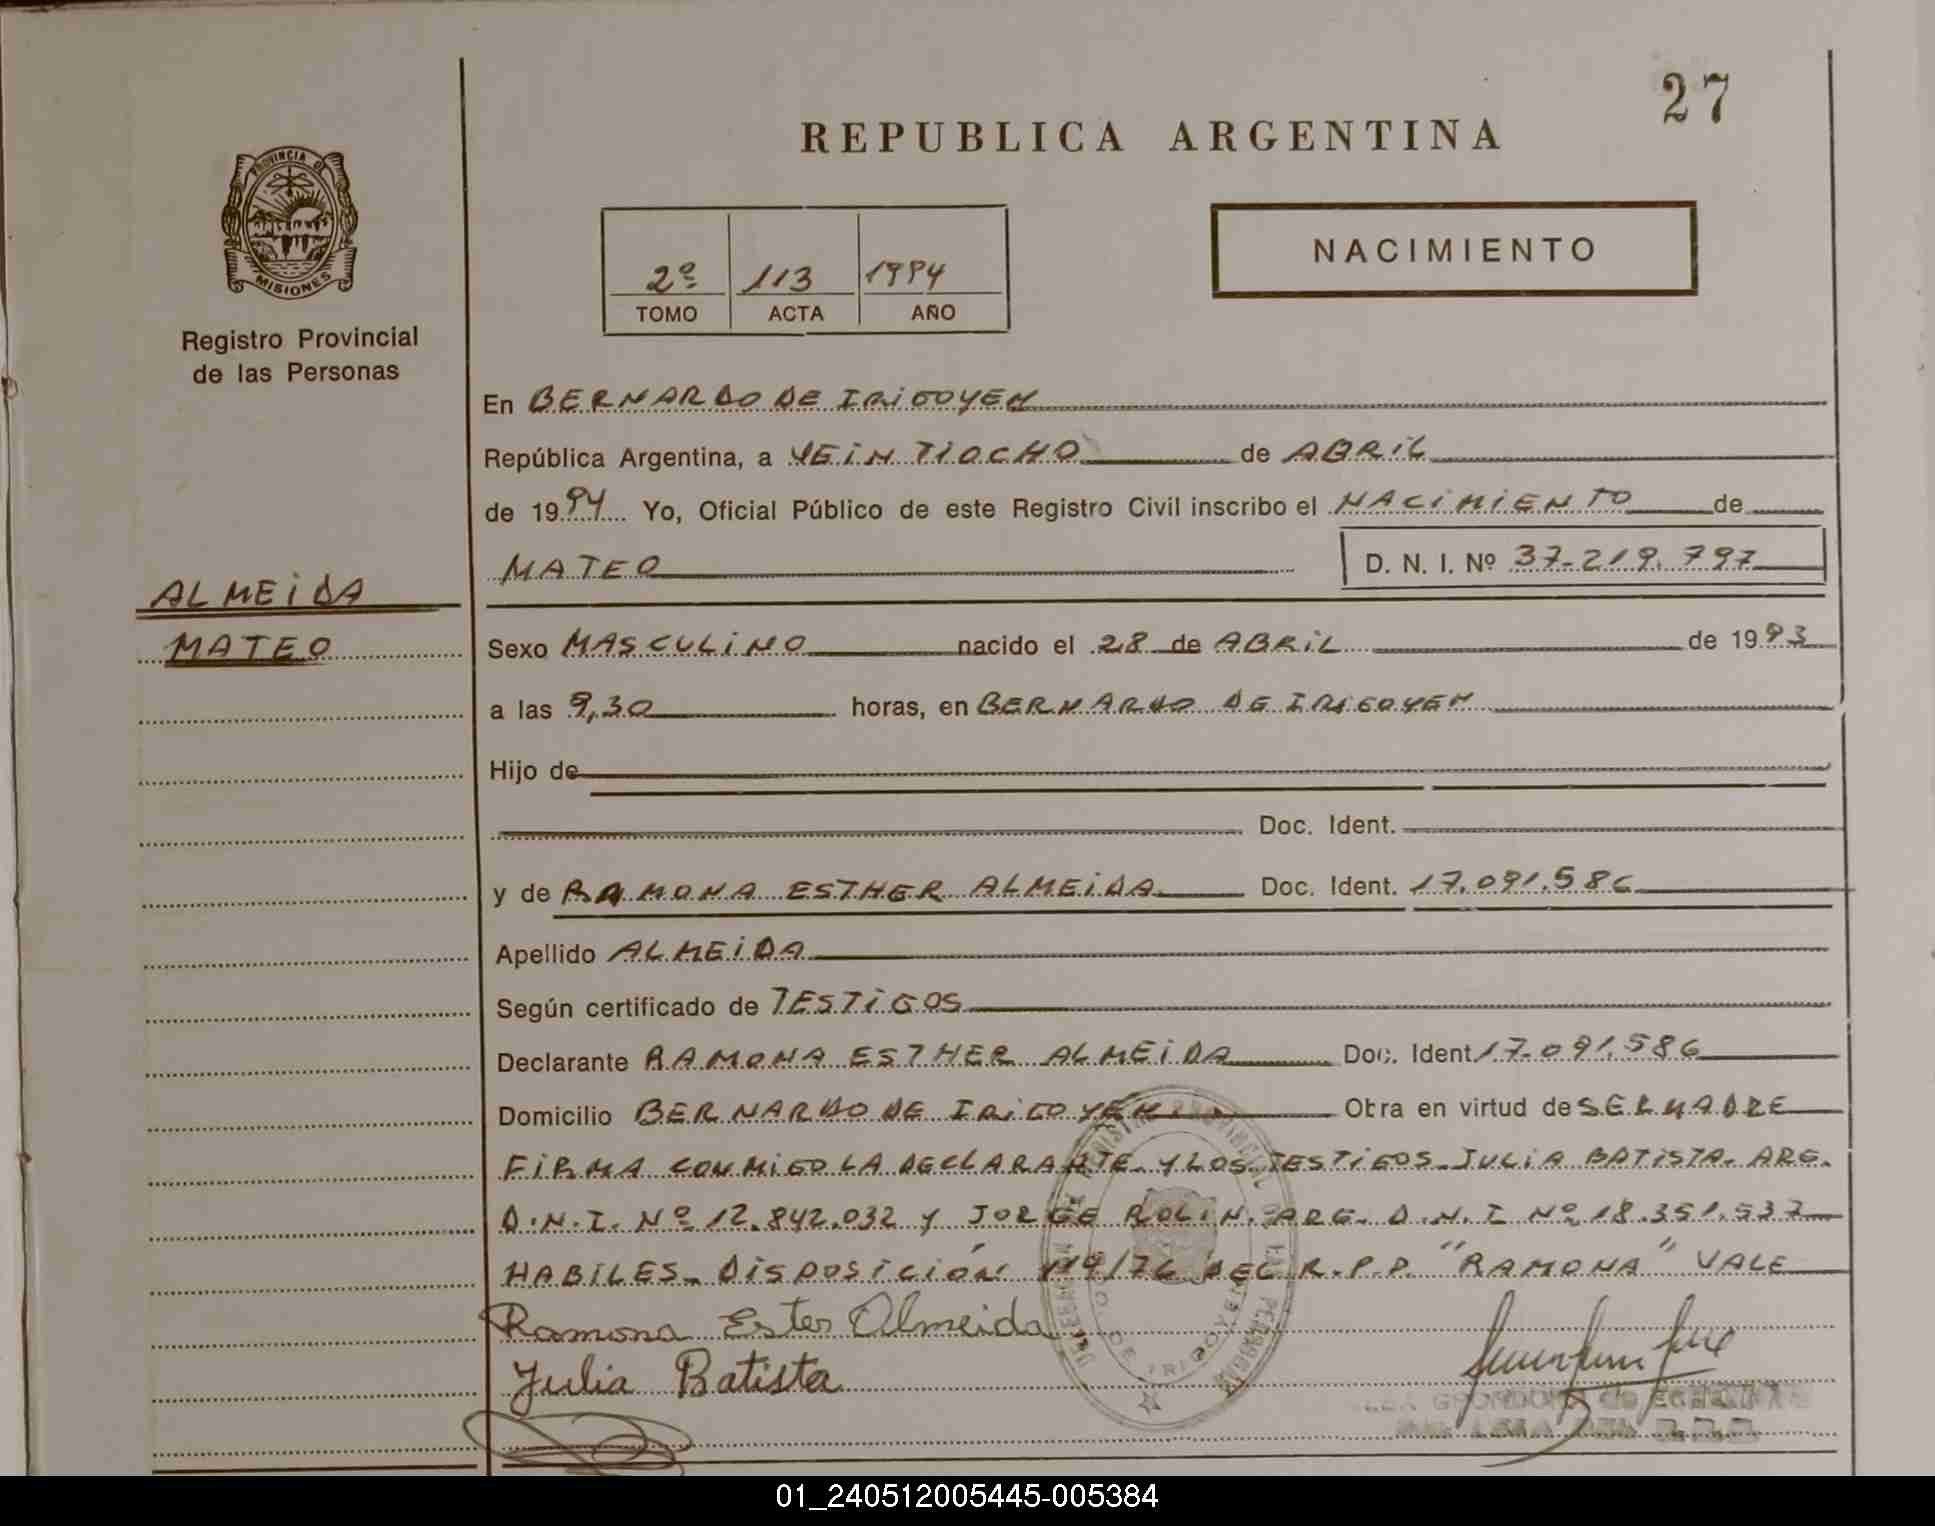 27
REPUBLICA ARGENTINA
PROVINCIA DE
MISIONES
Registro Provincial
de las Personas
2º 113 1994
TOMO ACTA AÑO
NACIMIENTO
En BERNARDO DE IRIGOYEN
República Argentina, a VEINTIOCHO de ABRIL
de 1994 Yo, Oficial Público de este Registro Civil inscribo el NACIMIENTO de
MATEO D. N. I. Nº 37-219.797
ALMEIDA
MATEO
Sexo MASCULINO nacido el 28 de ABRIL de 1993
a las 9,30 horas, en BERNARDO DE IRIGOYEN
Hijo de
Doc. Ident.
y de RAMONA ESTHER ALMEIDA Doc. Ident. 17.091.586
Apellido ALMEIDA
Según certificado de TESTIGOS
Declarante RAMONA ESTHER ALMEIDA Doc. Ident 17-091.586
Domicilio BERNARDO DE IRIGOYEN Obra en virtud de SER MADRE
FIRMA CONMIGO LA DECLARANTE Y LOS TESTIGOS JULIA BATISTA. ARG.
D.N.I. Nº 12.842.032 Y JORGE ROLIN. ARG. D.N.I Nº 18.351.537
HABILES. DISPOSICIÓN 119/76 DEL R.P.P. "RAMONA" VALE
Ramona Ester Almeida
Julia Batista
01_240512005445-005384